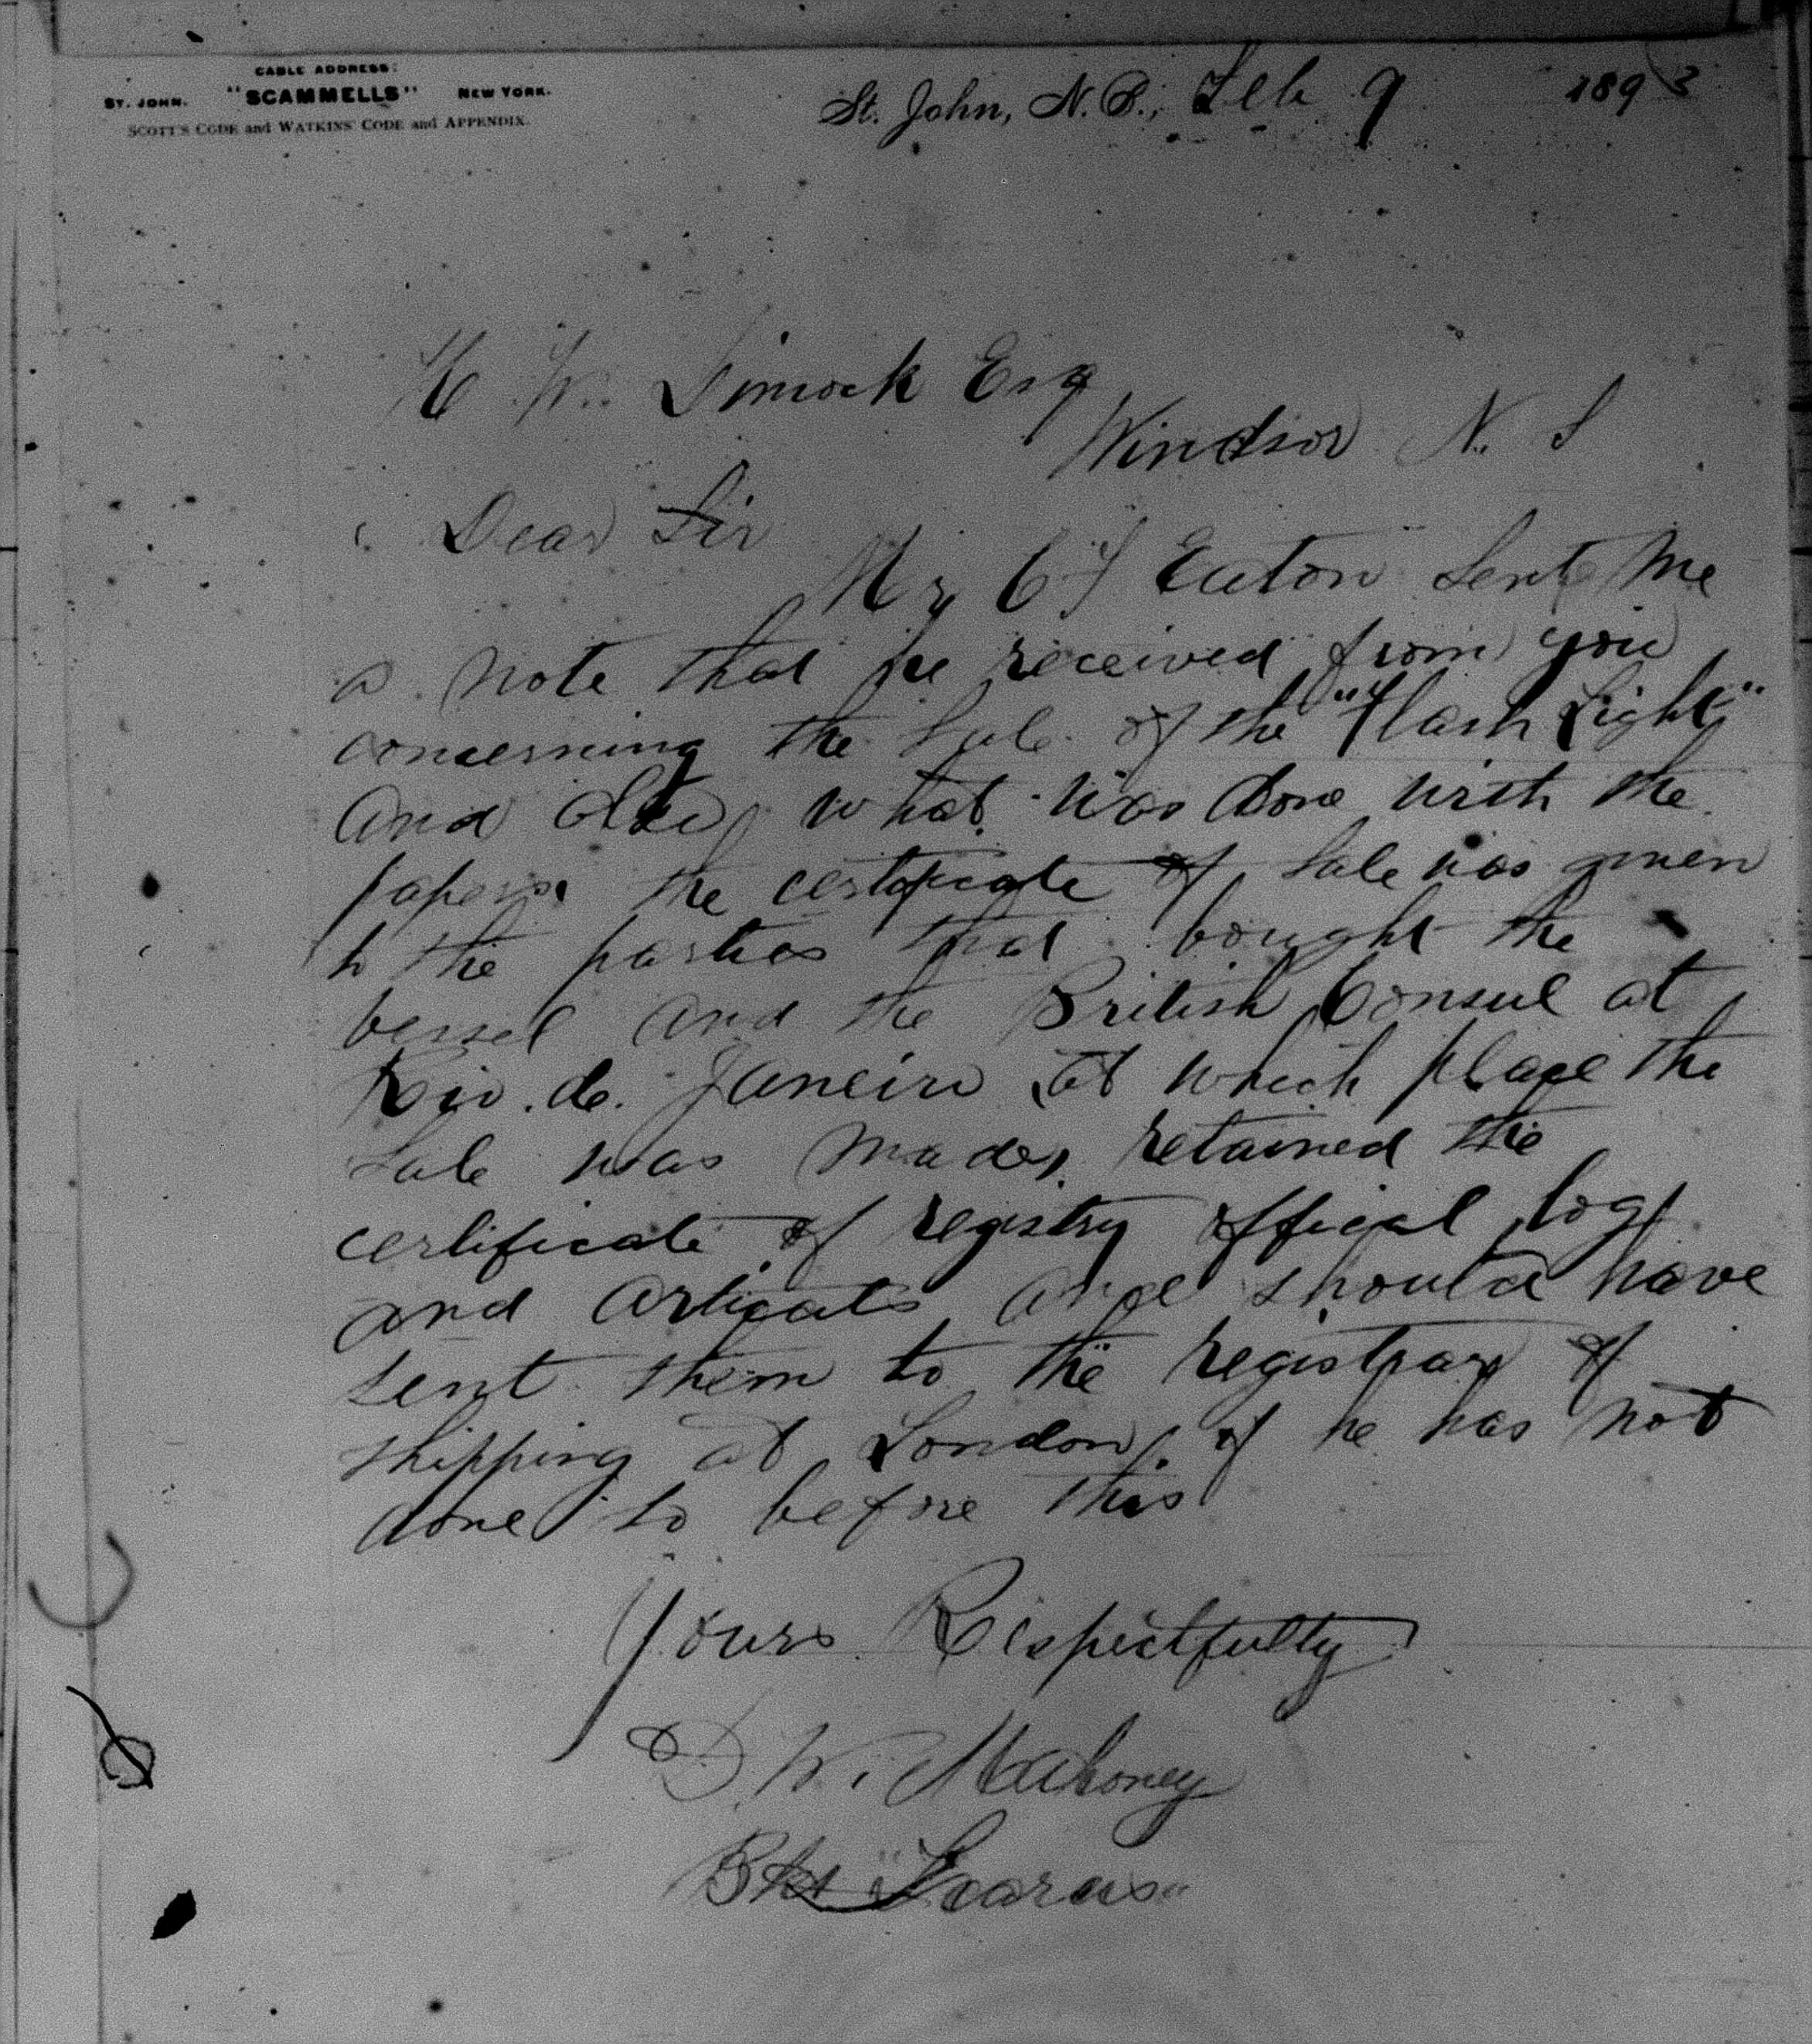 CABLE ADDRESS:
ST. JOHN. "SCAMMELLS" NEW YORK.
SCOTT'S CODE and WATKINS' CODE and APPENDIX.
St. John, N. B., Feb 9 1893
H W. Dimock Esq
Windsor N. S
Dear Sir
Mr C F Eaton Sent Me
a Note that he received from you
concerning the Sale of the "Flash Light"
and also what was done with the
papers. the certificate of Sale was given
to the parties that bought the
vessel and the British Consul at
Rio. de. Janeiro at which place the
Sale was Made, retained the
certificate of registry offical log
and and should have
sent them to the registrar of
shipping at London, if he has not
done so before this
Yours Respectfully
D. W. Mahoney
Bkt "Icarus"